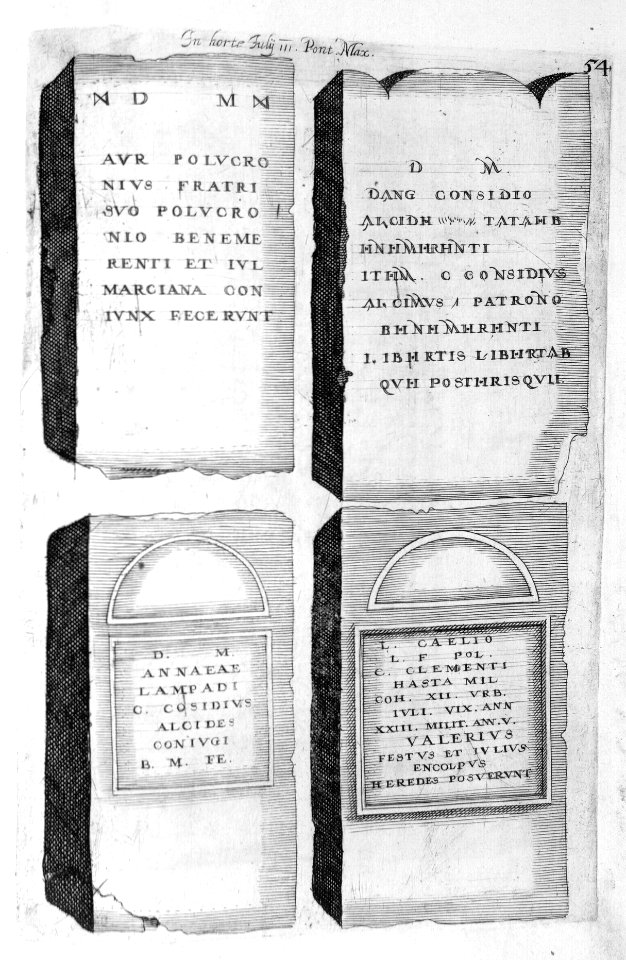 In horte Julij III. Pont. Max.
54
D M
AVR POLVCRO
NIVS FRATRI
SVO POLVCRO
NIO BENEME
RENTI ET IVL
MARCIANA CON
IVNX FECERVNT
D M.
DANG CONSIDIO
ALCIDH TATAHB
HNHMHRHNTI
ITHM. C CONSIDIVS
ALCIMVS PATRONO
BHNHMHRHNTI
LIBHRTIS LIBHRTAB
QVH POSTHRISQVH
D. M.
ANNAEAE
LAMPADI
C. COSIDIVS
ALCIDES
CONIVGI
B. M. FE.
L. CAELIO
L. F POL.
C. CLEMENTI
HASTA MIL
COH. XII. VRB.
IVLI. VIX. ANN
XXIII. MILIT. AN. V.
VALERIVS
FESTVS ET IVLIVS
ENCOLPVS
HEREDES POSVERVNT